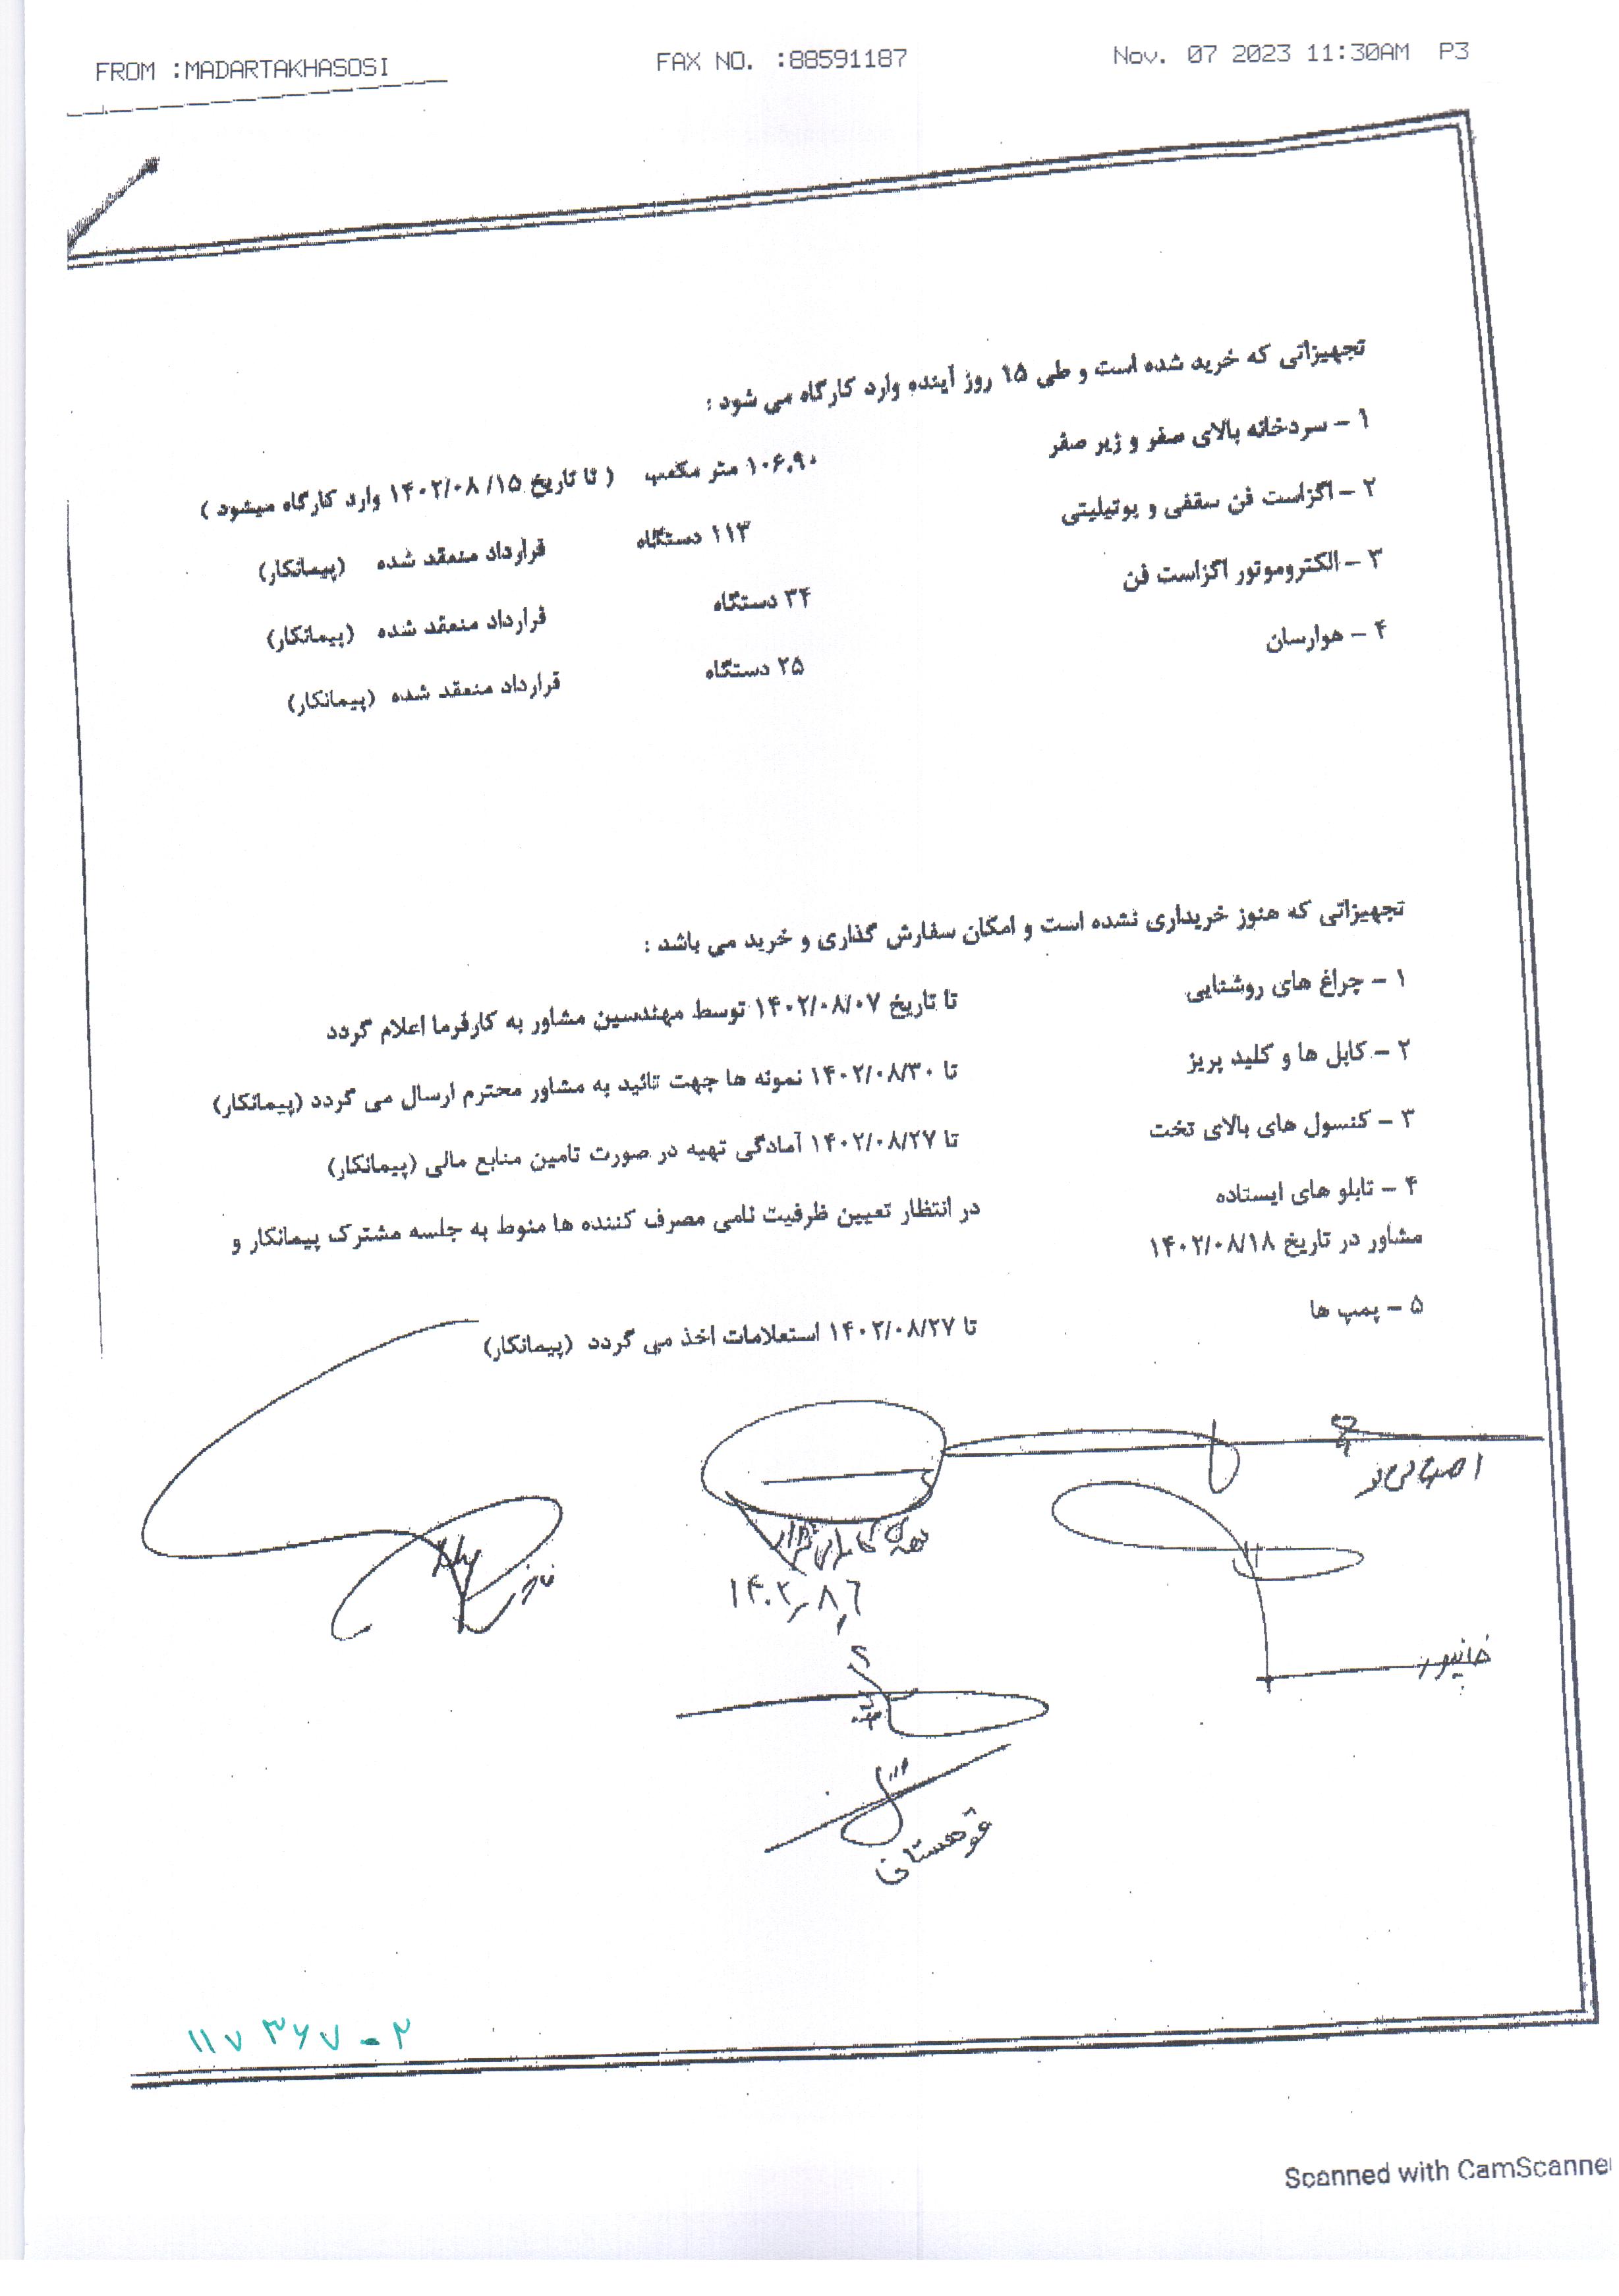 FROM :MADARTAKHASOSI FAX NO. :88591187 Nov. 07 2023 11:30AM P3
تجهیزاتی که خرید شده است و طی ۱۵ روز آینده وارد کارگاه می شود :
۱ – سردخانه بالای صفر و زیر صفر ۱۰۶.۹۰ متر مکعب ( تا تاریخ ۱۴۰۲/۰۸/۱۵ وارد کارگاه میشود )
۲ – اگزاست فن سقفی و یوتیلیتی ۱۱۳ دستگاه قرارداد منعقد شده (پیمانکار)
۳ – الکتروموتور اگزاست فن ۳۴ دستگاه قرارداد منعقد شده (پیمانکار)
۴ – هوارسان ۲۵ دستگاه قرارداد منعقد شده (پیمانکار)
تجهیزاتی که هنوز خریداری نشده است و امکان سفارش گذاری و خرید می باشد :
۱ – چراغ های روشنایی تا تاریخ ۱۴۰۲/۰۸/۰۷ توسط مهندسین مشاور به کارفرما اعلام گردد
۲ – کابل ها و کلید پریز تا ۱۴۰۲/۰۸/۳۰ نمونه ها جهت تائید به مشاور محترم ارسال می گردد (پیمانکار)
۳ – کنسول های بالای تخت تا ۱۴۰۲/۰۸/۲۷ آمادگی تهیه در صورت تامین منابع مالی (پیمانکار)
۴ – تابلو های ایستاده در انتظار تعیین ظرفیت نامی مصرف کننده ها منوط به جلسه مشترک پیمانکار و
مشاور در تاریخ ۱۴۰۲/۰۸/۱۸
۵ – پمپ ها تا ۱۴۰۲/۰۸/۲۷ استعلامات اخذ می گردد (پیمانکار)
۱۴۰۲٫۸٫۶
۱۱۷۳۶۷-۲
Scanned with CamScanner